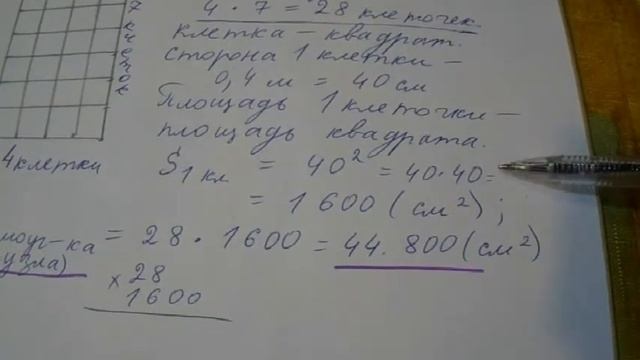 4 · 7 = 28 клеточек.
клетка – квадрат.
сторона 1 клетки –
0,4 м = 40 см
Площадь 1 клеточки –
площадь квадрата.
7 клеток
4 клетки
S 1 кл = 40² = 40·40=
= 1600 (см²);
моуг-ка = 28 · 1600 = 44.800 (см²)
узла)
× 28
1600